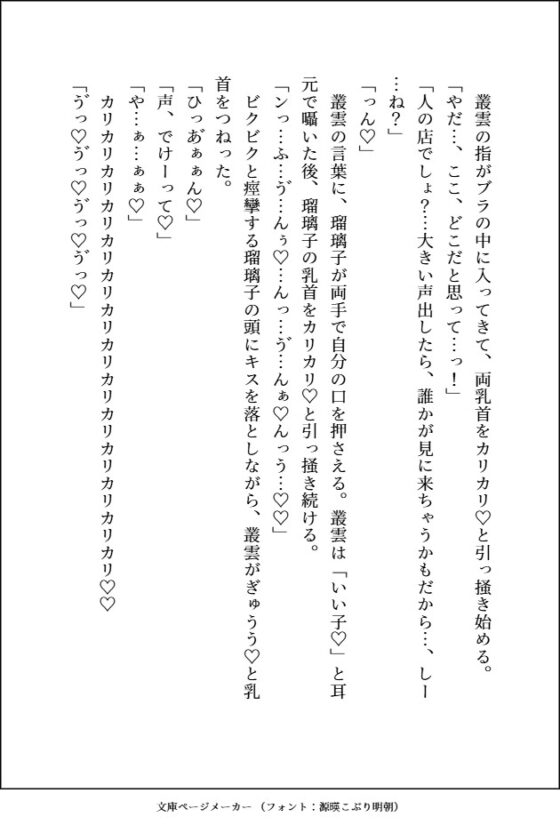 叢雲の指がブラの中に入ってきて、両乳首をカリカリ♡と引っ掻き始める。
「やだ…、ここ、どこだと思って…っ！」
「人の店でしょ？…大きい声出したら、誰かが見に来ちゃうかもだから…、しー
…ね？」
「っん♡」
叢雲の言葉に、瑠璃子が両手で自分の口を押さえる。叢雲は「いい子♡」と耳
元で囁いた後、瑠璃子の乳首をカリカリ♡と引っ掻き続ける。
「ンっ…ふ…ゔ…んぅ♡…んっ…ゔ…んぁ♡んっう…♡♡」
ビクビクと痙攣する瑠璃子の頭にキスを落としながら、叢雲がぎゅうう♡と乳
首をつねった。
「ひっあ゙ぁぁん♡」
「声、でけーって♡」
「や…ぁ…ぁぁ♡」
カリカリカリカリカリカリカリカリカリカリカリカリカリカリ♡♡
「ゔっ♡ゔっ♡ゔっ♡ゔっ♡」
文庫ページメーカー（フォント：源暎こぶり明朝）